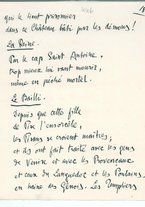 qui le tint prisonnier
dans ce Château bâti par les démons !
La Reine.
Par le cap Saint Antoine,
trop mieux lui vaut mourir,
même en péché mortel.
Le Bailli.
Depuis que cette fille
de Pise l'ensorcelle,
les Pisans se croient maîtres ;
et ils ont fait traité avec les gens
de Venise et avec les Provençaux
et ceux du Languedoc et les Poulains,
en haine des Génois. Les Templiers